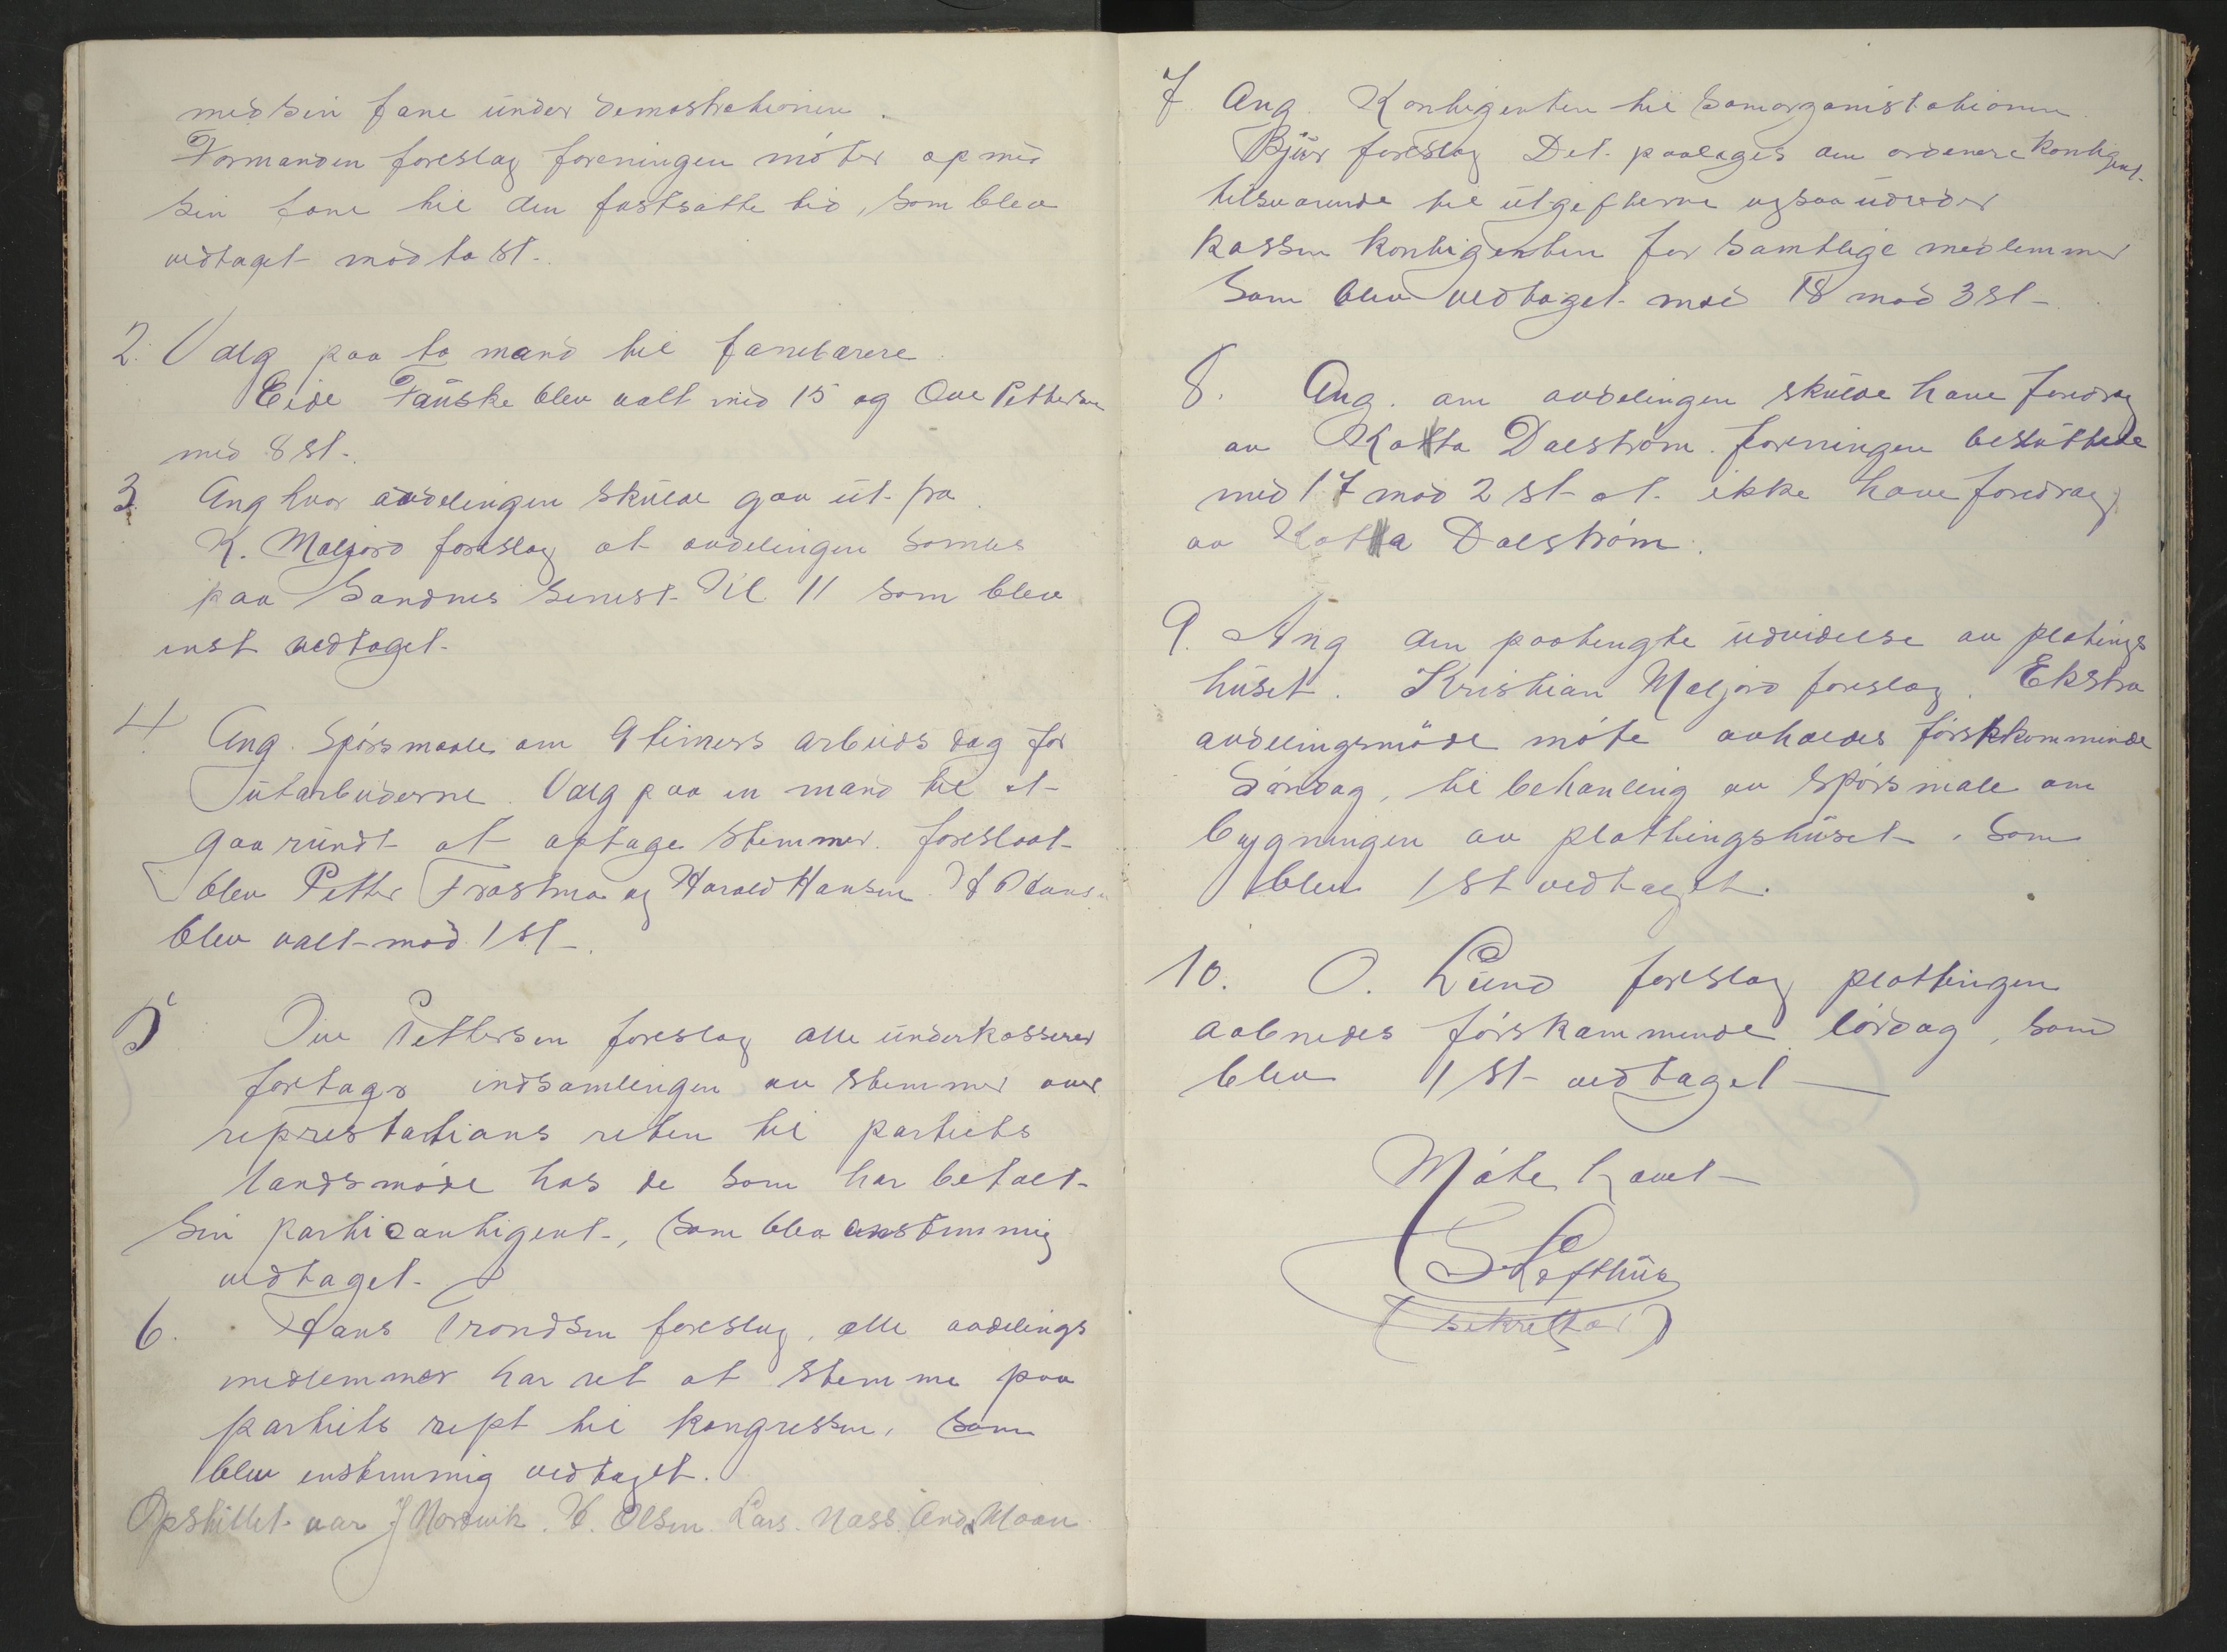 med sin fane under demostrationen.
Formanden foreslog foreningen møter op med
sin fane til den fastsatte tid, som blev
vedtaget mod to st.
2. Valg paa to mand til fanebærere
Eide Fauske blev valt med 15 og Ove Pettersen
med 8 st.
3. Ang hvor avdelingen skulde gaa ut fra
K. Maljord foreslog at avdelingen samles
paa Sandnes senest kl 11 som blev
enst vedtaget.
4 Ang. Spørsmaale om 9 timers arbeids dag for
utarbeiderne. Valg paa en mand til at
gaa rundt at optage stemmer. foreslaat
blev Petter Trastmo og Harald Hansen. H Hansen
blev valt mod 1 st.
5 Ove Pettersen foreslog alle underkasserer
fortage indsamlingen av stemmer over
represtations reten til partiets
landsmøde hos de som har betalt
sin particontigent, som blev enstemmig
vedtaget.
6. Hans Trondsen foreslog, alle avdelings
medlemmer har ret at stemme paa
partiets rept til kongressen, som
blev enstemmig vedtaget.
Opstillet var J Nordvik. H. Olsen. Lars. Næss. And. Moan
7 Ang. Kontigenten til Samorganistationen.
Bjur foreslog Det paalages den ordenere kontigent
tilsvarende til utgifterne ogsaa udreder
kassen kontigenten for samtlige medlemmer
Som blev vedtaget med 18 mod 3 st
8. Ang. om avdelingen skulde have foredrag
av Katta Dalstrøm. foreningen besluttede
med 17 mod 2 st at ikke have foredrag
av Katta Dalstrøm.
9. Ang den paatengte udvidelse av platings
huset. Kristian Maljord foreslog. Ekstra
avdelingsmøde møte avholdes førstkommende
Søndag, til behanling av spørsmale om
bygningen av plattingshuset. Som
blev 1 st vedtaget.
10. O. Lund foreslog plattingen
aabnedes førskommende lørdag, som
blev 1 st vedtaget
Møte hævet
S Lofthus
(sekretær)